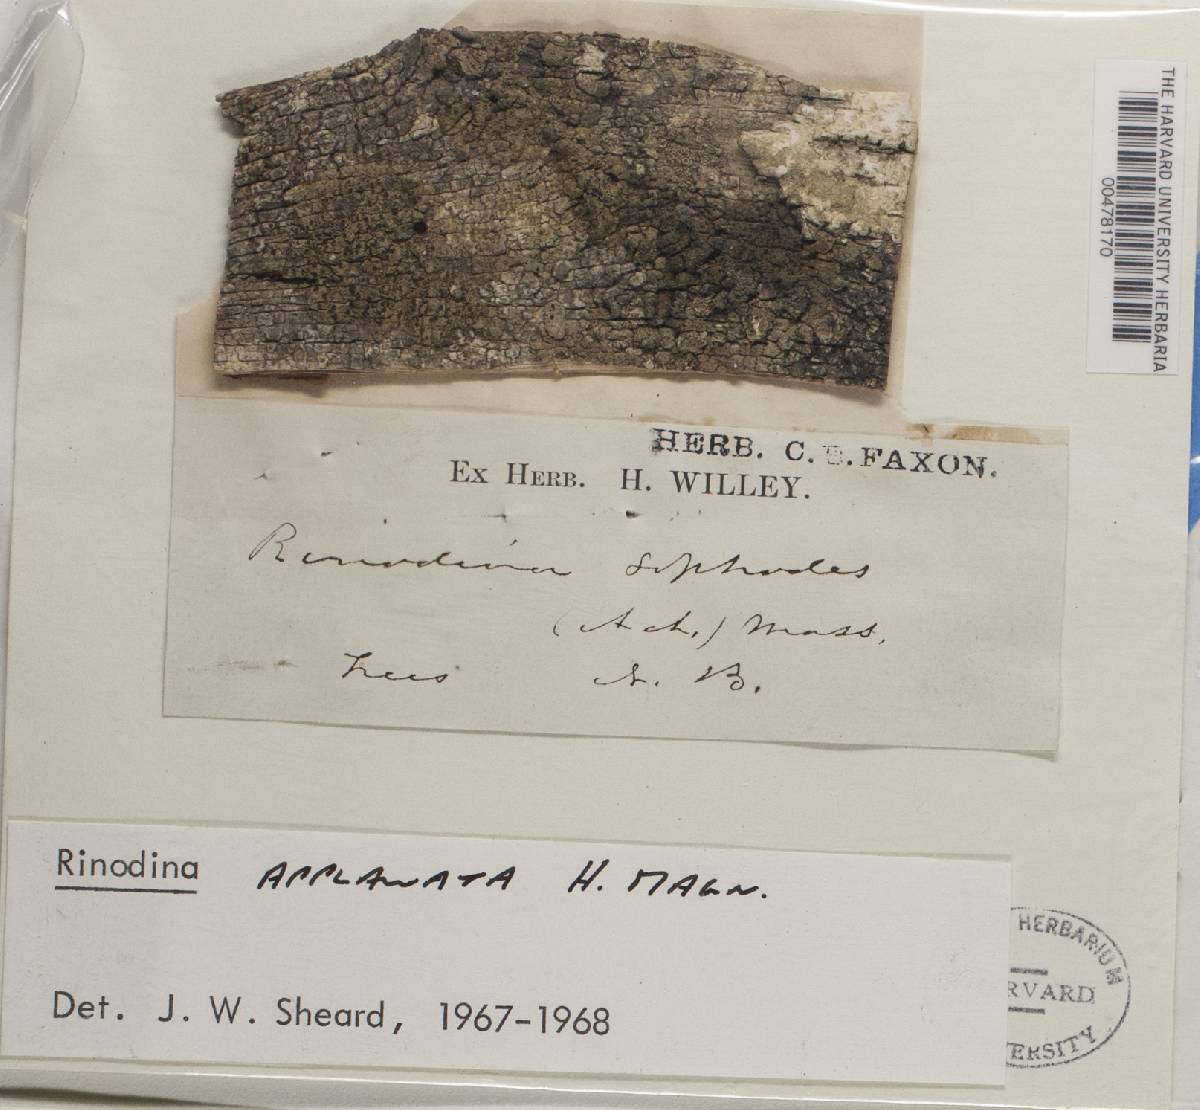 THE HARVARD UNIVERSITY HERBARIA
00478170
HERB. C. E. FAXON.
EX HERB. H. WILLEY.
Rinodina sophodes
(Ach.) Mass.
Trees N. B.
Rinodina APPLANATA H. MAGN.
Det. J. W. Sheard, 1967-1968
HERBARIUM
RVARD
ERSITY